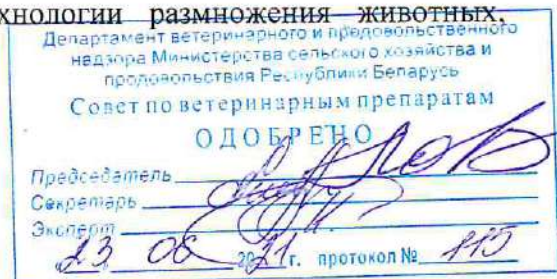 хнологии размножения животных,
Департамент ветеринарного и продовольственного
надзора Министерства сельского хозяйства и
продовольствия Республики Беларусь
Совет по ветеринарным препаратам
ОДОБРЕНО
Председатель
Секретарь
Эксперт
23 06 2021г. протокол № 115